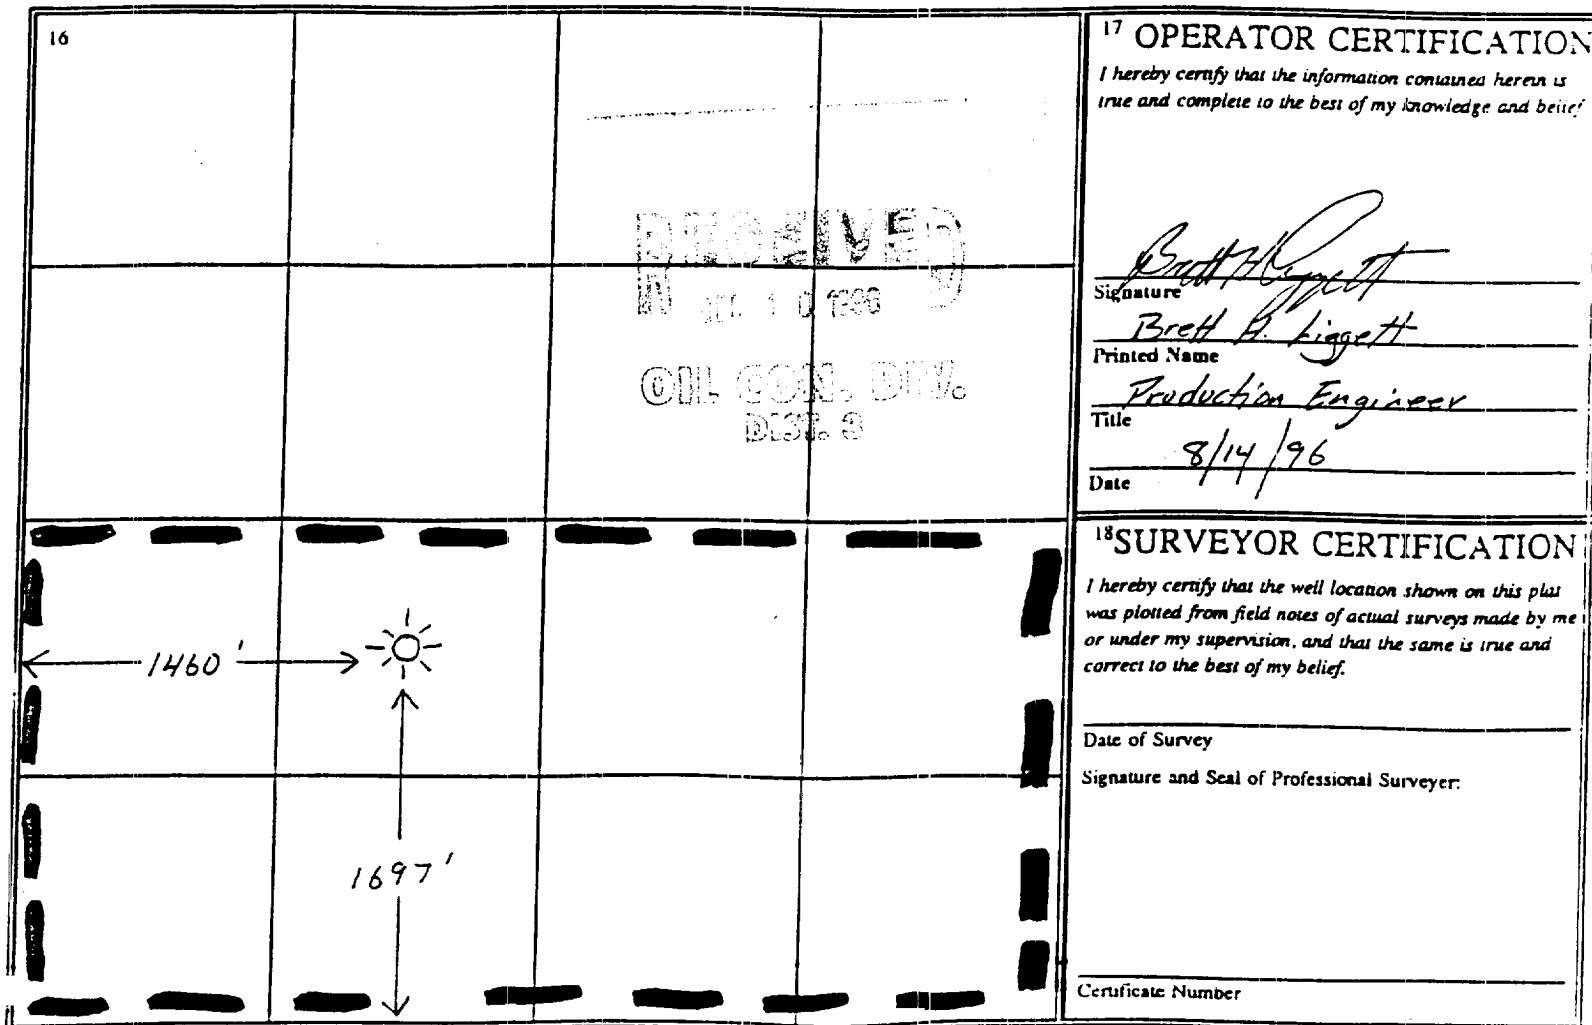 16
RECEIVED
1 0 1996
OIL CON. DIV.
DIST. 3
1460'
1697'
17 OPERATOR CERTIFICATION
I hereby certify that the information contained herein is
true and complete to the best of my knowledge and belief
Brett H Liggett
Signature
Brett H. Liggett
Printed Name
Production Engineer
Title
8/14/96
Date
18 SURVEYOR CERTIFICATION
I hereby certify that the well location shown on this plat
was plotted from field notes of actual surveys made by me
or under my supervision, and that the same is true and
correct to the best of my belief.
Date of Survey
Signature and Seal of Professional Surveyer:
Certificate Number